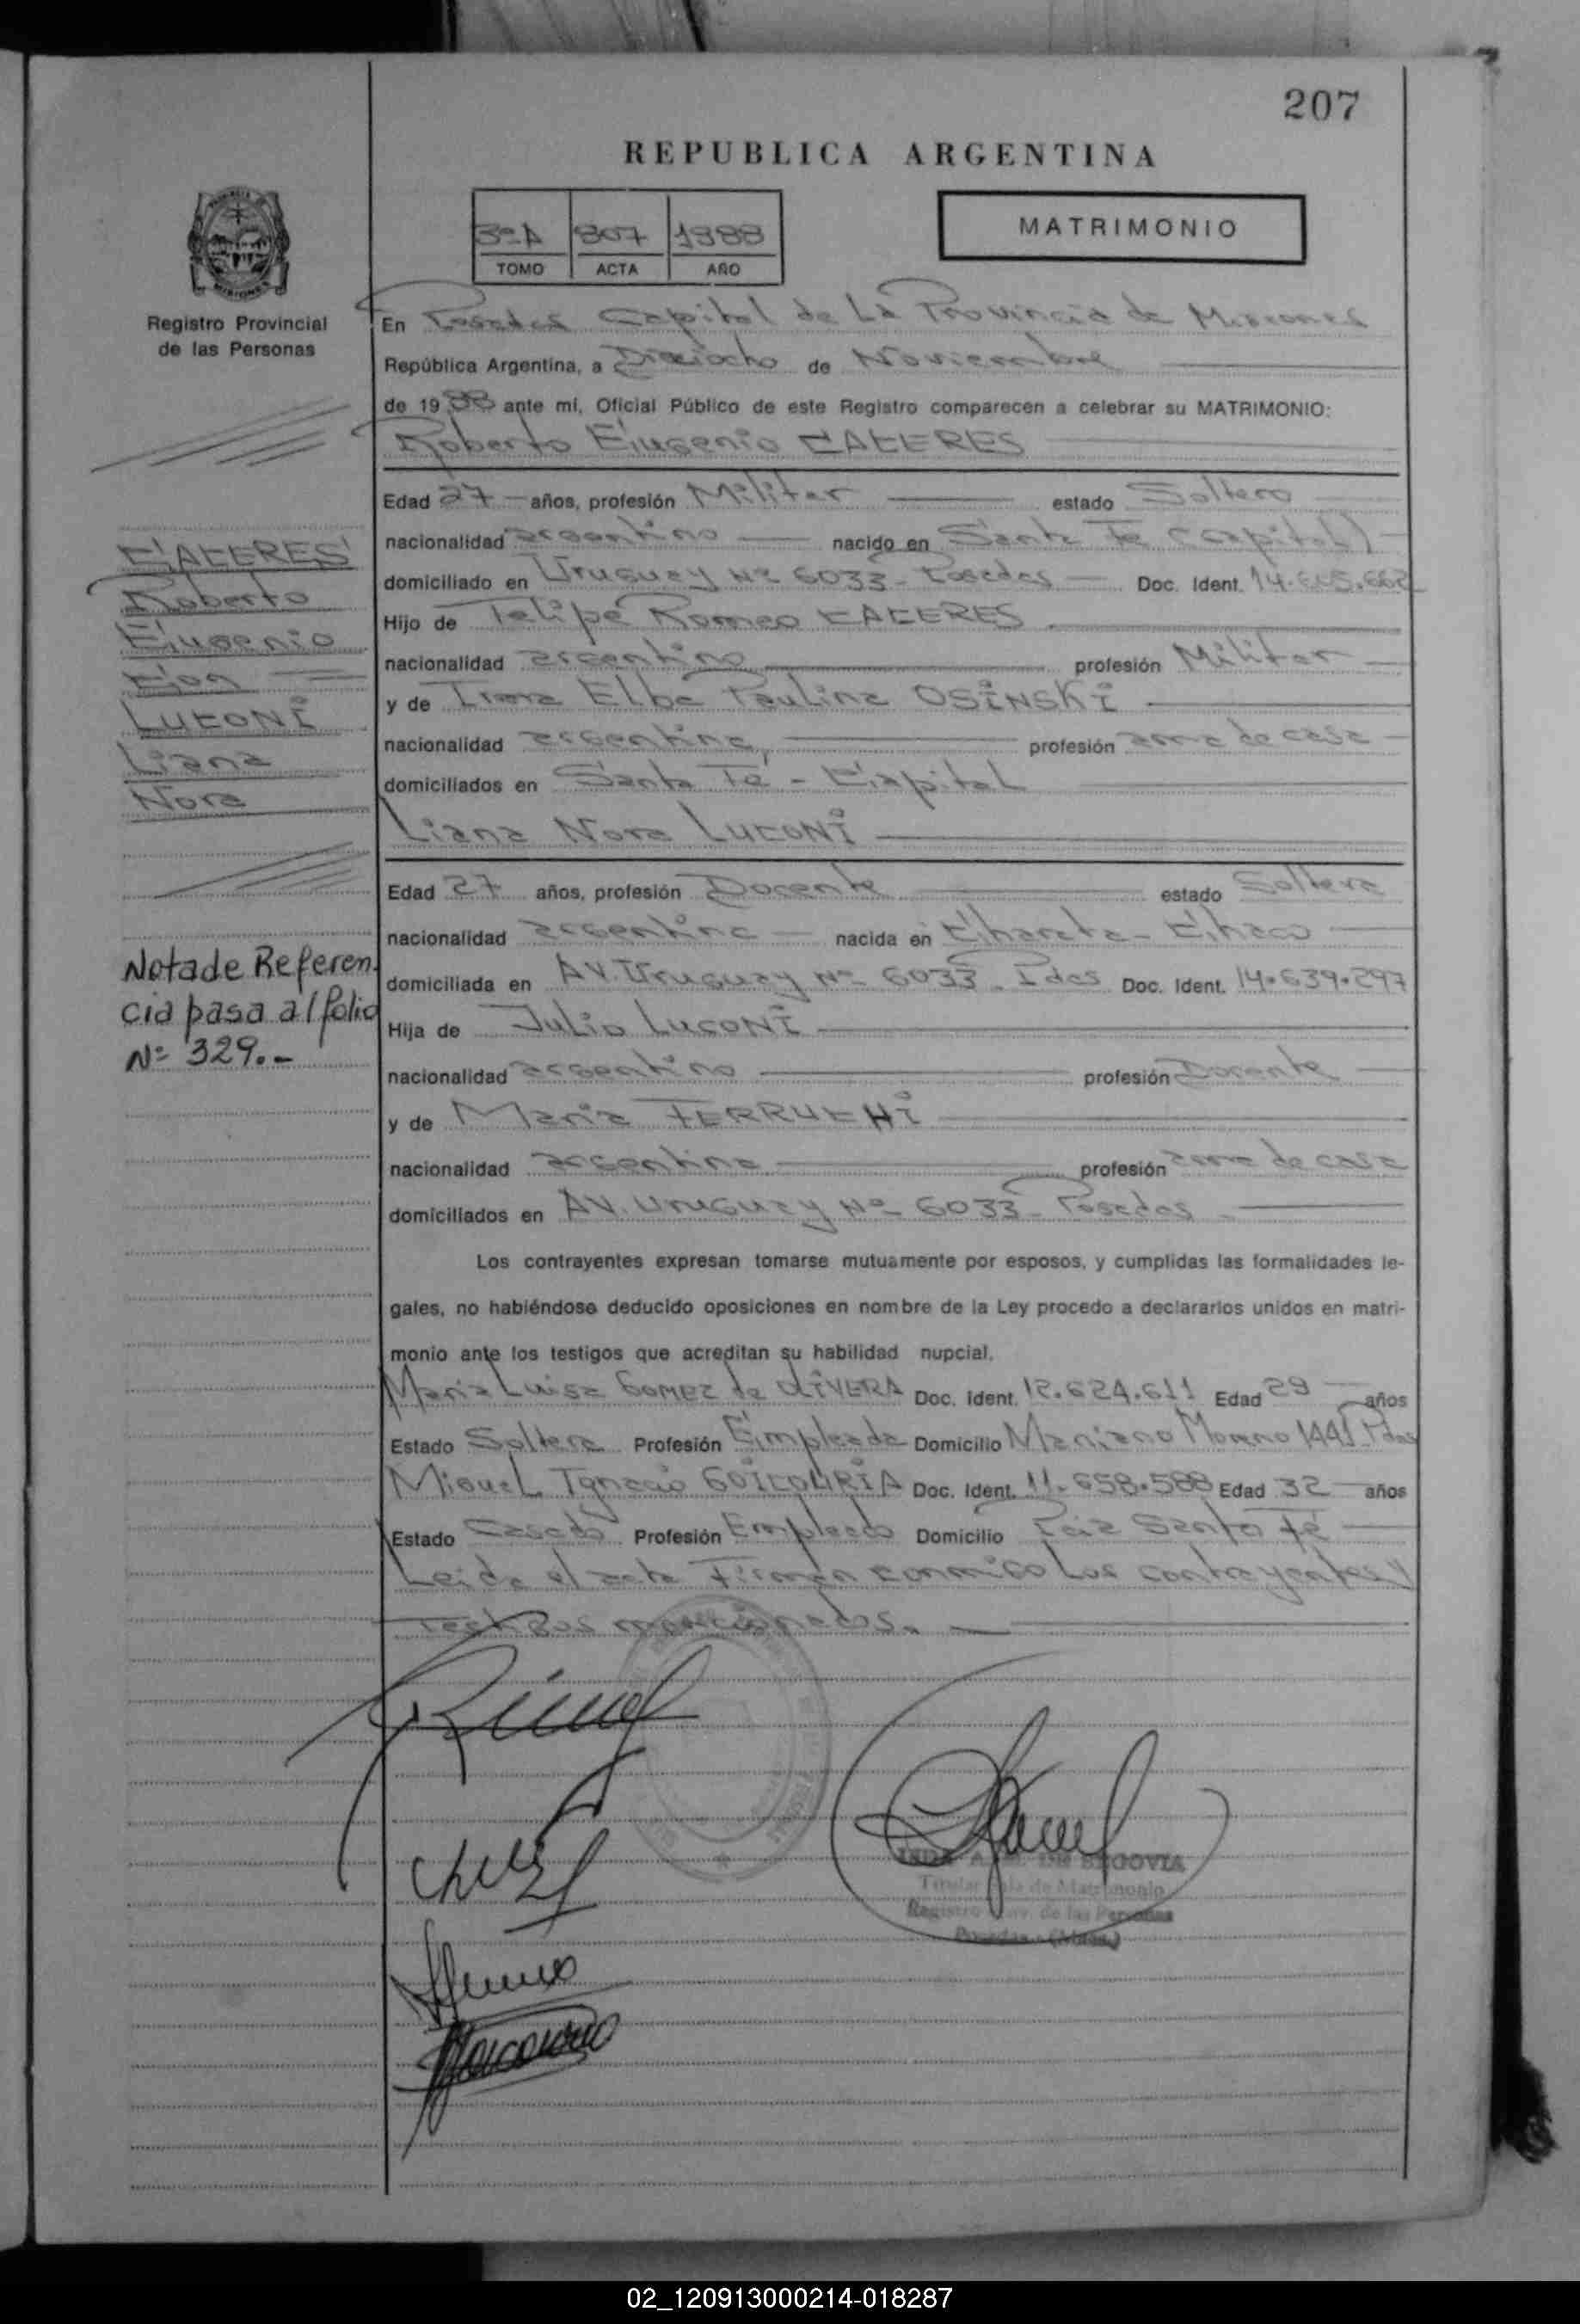 207
REPUBLICA ARGENTINA
3º A 807 1988
TOMO ACTA AÑO
MATRIMONIO
Registro Provincial
de las Personas
En Posadas Capital de La Provincia de Misiones
República Argentina, a Dieciocho de Noviembre
de 1988 ante mí, Oficial Público de este Registro comparecen a celebrar su MATRIMONIO:
Roberto Eugenio CACERES
Edad 27 años, profesión Militar estado Soltero
nacionalidad argentino nacido en Santa Fe (Capital)
domiciliado en Uruguay Nº 6033 - Posadas Doc. Ident.
Hijo de Felipe Romeo CACERES
nacionalidad argentino profesión Militar
y de Elba Paulina OSINSKI
nacionalidad argentina, profesión ama de casa
domiciliados en Santa Fé - Capital
Liana Nora LUCONI
Edad 27 años, profesión Docente estado Soltera
nacionalidad argentina nacida en Charata - Chaco
domiciliada en AV. Uruguay Nº 6033 - Pdas Doc. Ident. 14.639.297
Hija de Julio LUCONI
nacionalidad argentino profesión Docente
y de Maria FERRUCHI
nacionalidad argentina profesión ama de casa
domiciliados en AV. Uruguay Nº 6033 - Posadas
Los contrayentes expresan tomarse mutuamente por esposos, y cumplidas las formalidades le-
gales, no habiéndose deducido oposiciones en nombre de la Ley procedo a declararlos unidos en matri-
monio ante los testigos que acreditan su habilidad nupcial.
Maria Luisa GOMEZ de OLIVERA Doc. Ident. 12.624.611 Edad 29 años
Estado Soltera Profesión Empleada Domicilio Mariano Moreno 1441 Pdas
Miguel Ignacio GOICOURIA Doc. Ident. 11.658.588 Edad 32 años
Estado Casado Profesión Empleado Domicilio Santa Fé
Leida el acta Firman conmigo Los contrayentes y
Testigos mencionados.
CACERES
Roberto
Eugenio
con
LUCONI
Liana
Nora
Nota de Referen
cia pasa al folio
Nº 329.-
DE SEGOVIA
Titular Sala de Matrimonio
Registro Prov. de las Personas
Posadas - (Mnes.)
02_120913000214-018287